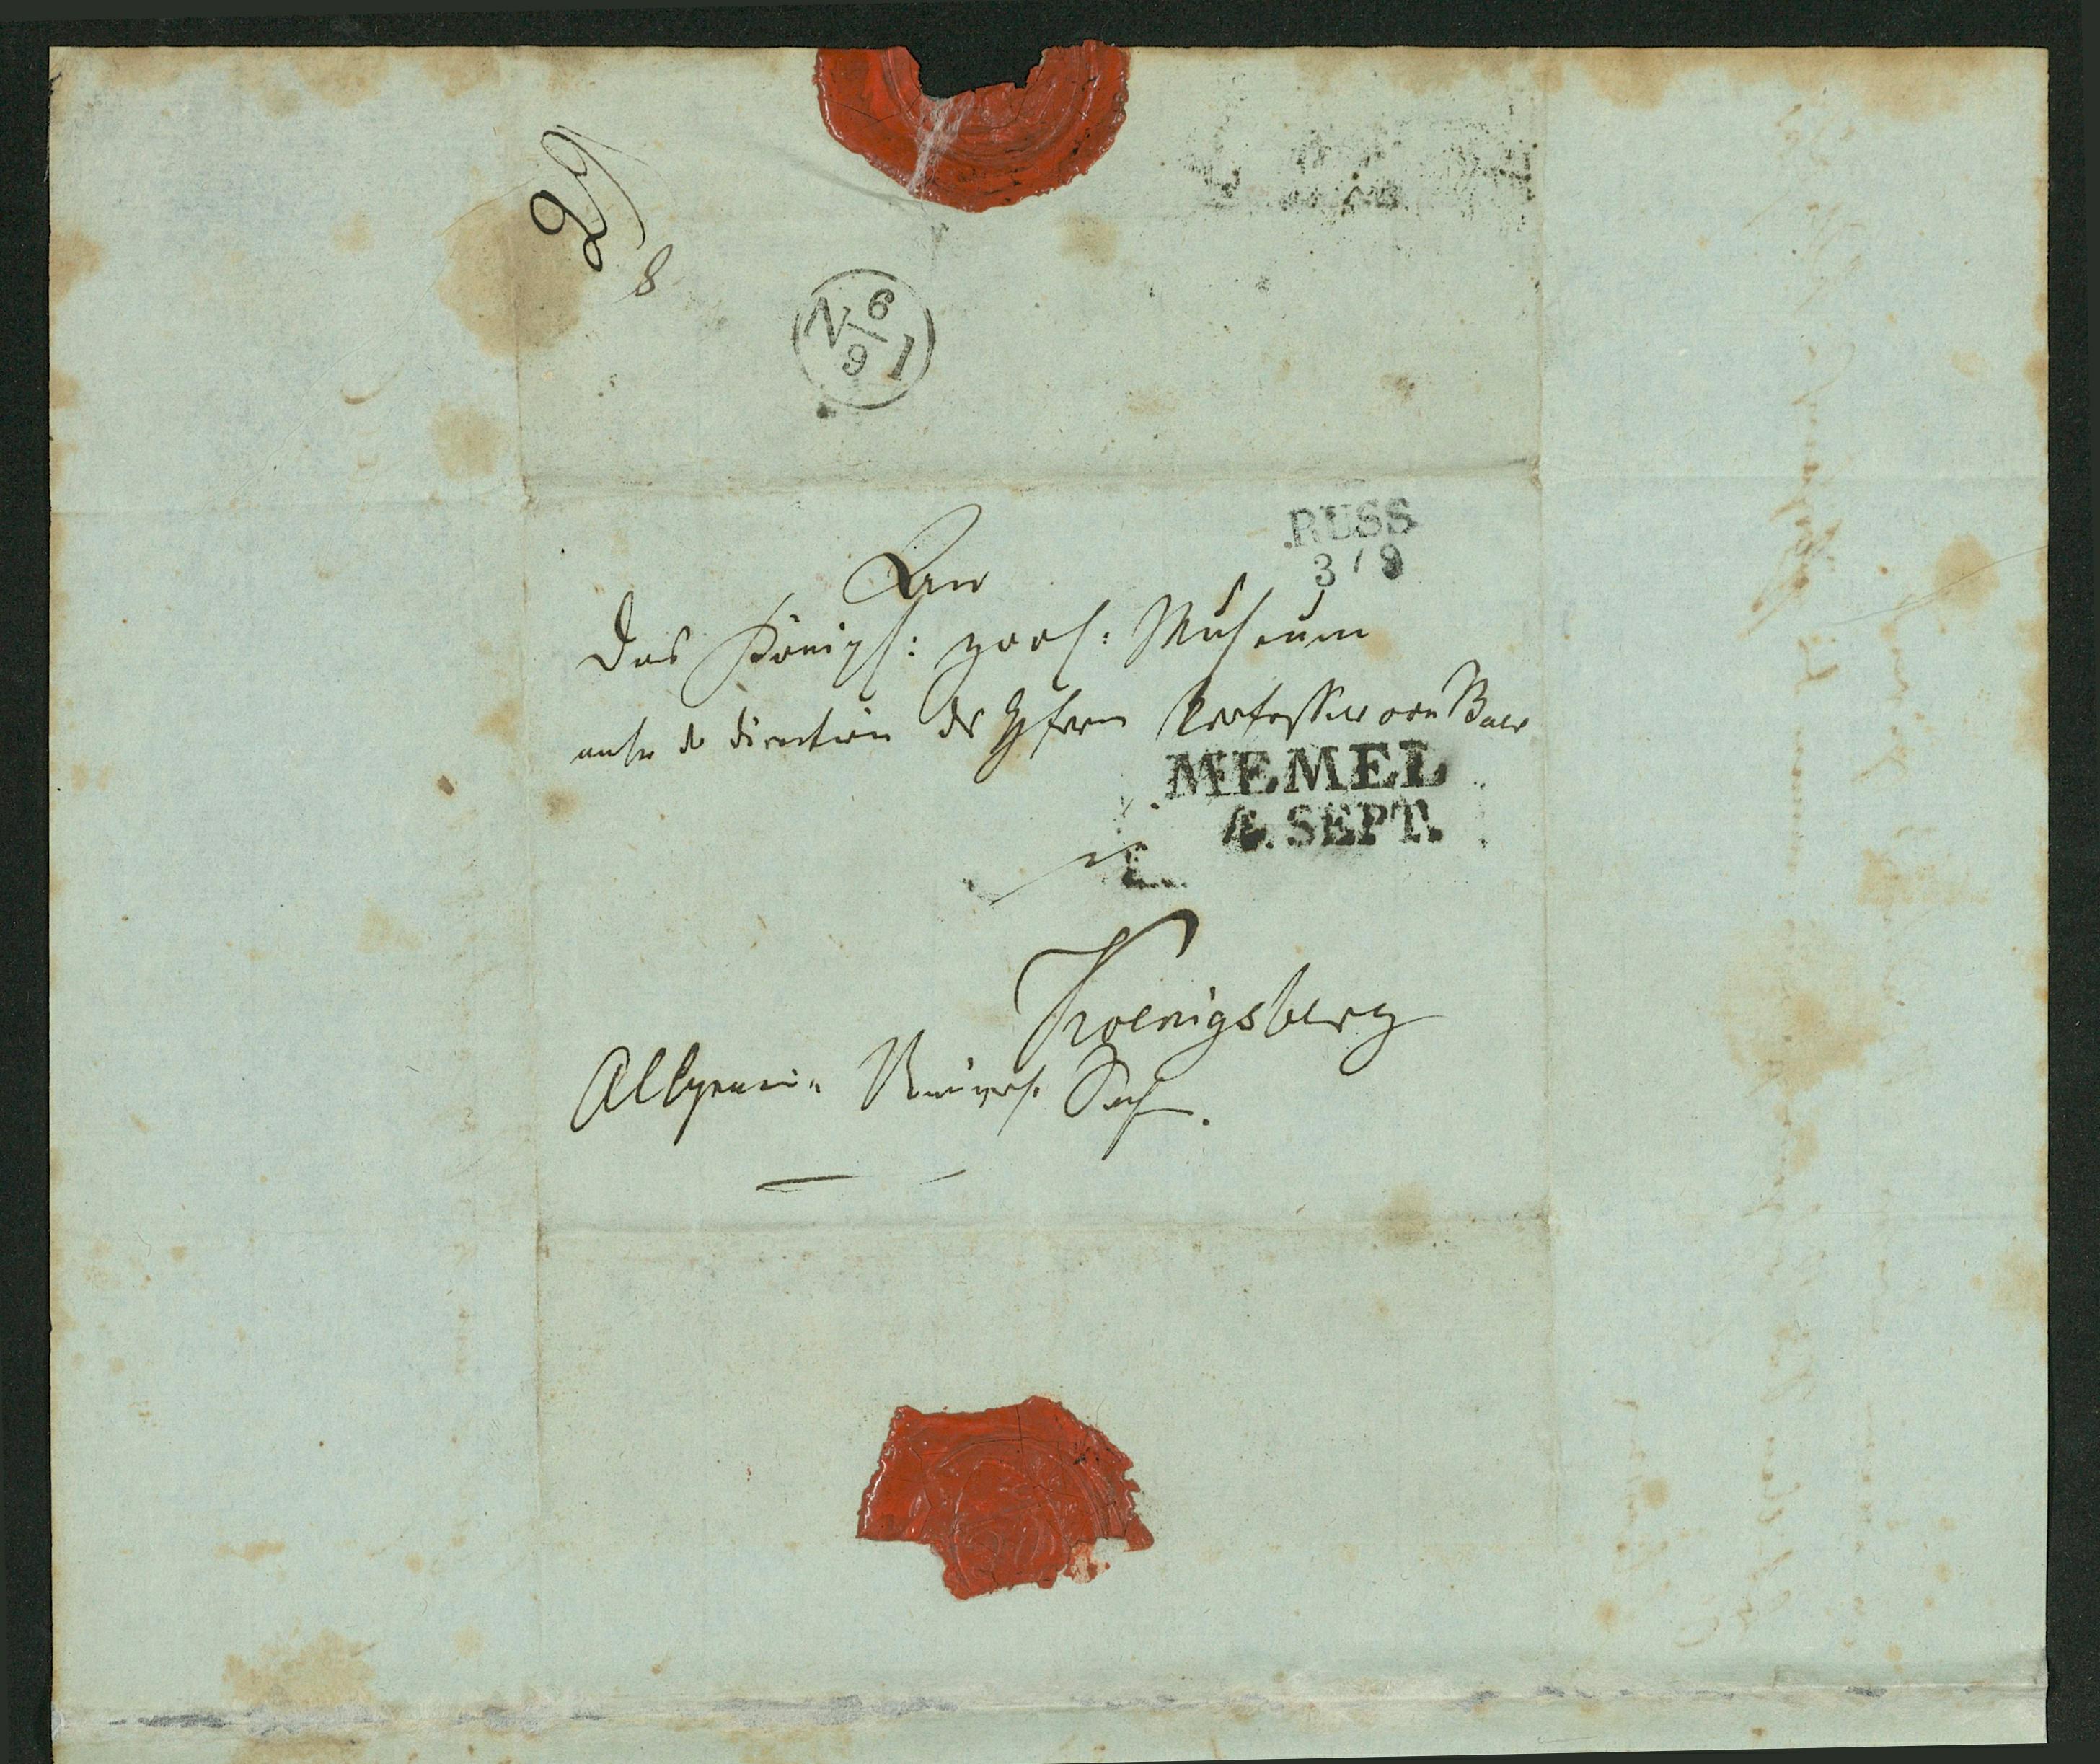 29
8
N 6/9 1
RUSS
3 / 9
An
das Königl: zool: Museum
unter der direction des Herrn Professor von Baer
MEMEL
4. SEPT.
in
Koenigsberg
Allgemeine Univers. Sache.